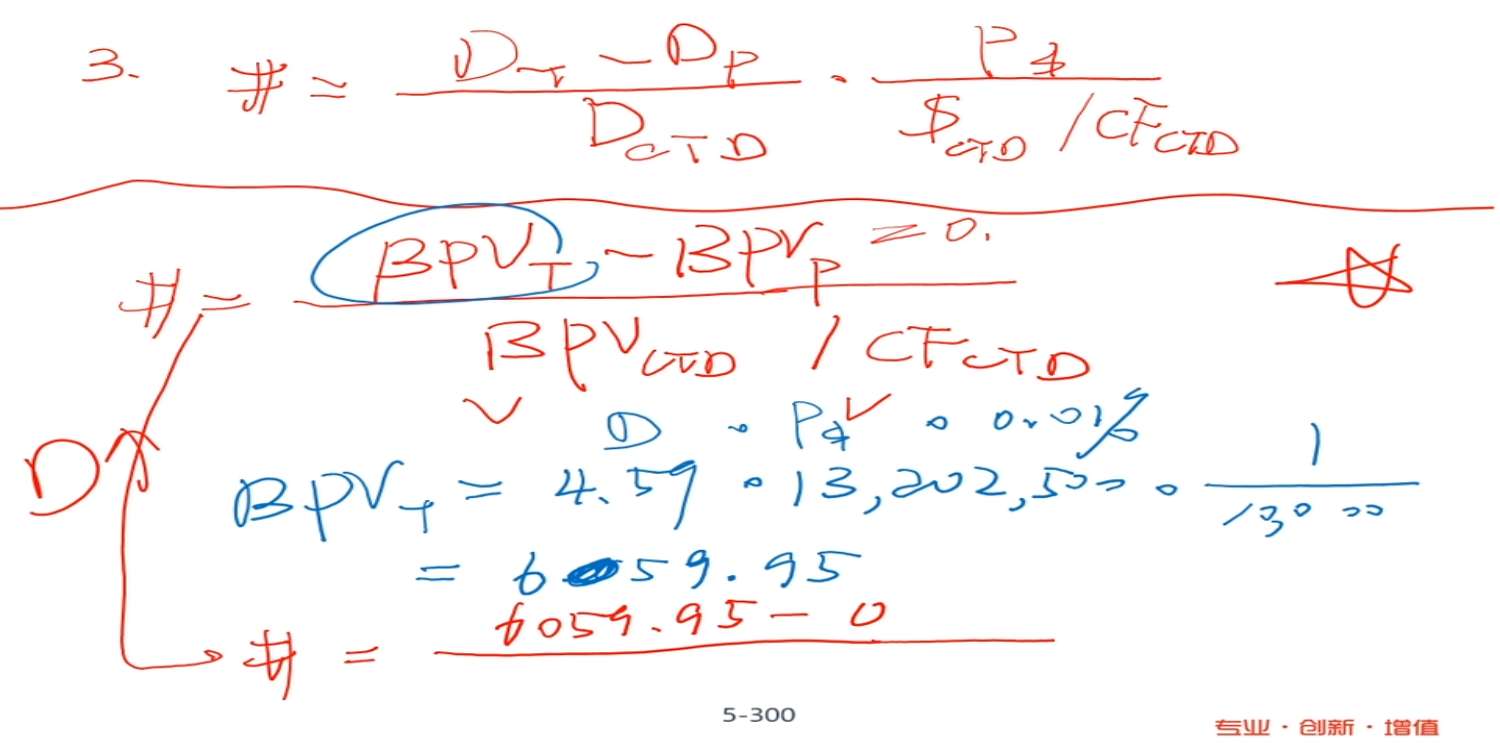 3. # = (D_T - D_P) / D_CTD · P_$ / ($_CTD / CF_CTD)
# = (BPV_T - BPV_P = 0.) / (BPV_CTD / CF_CTD)
D · P_$ · 0.01%
D BPV_T = 4.59 · 13,202,500 · 1 / 10000
= 6059.95
# = 6059.95 - 0
5-300
专业·创新·增值